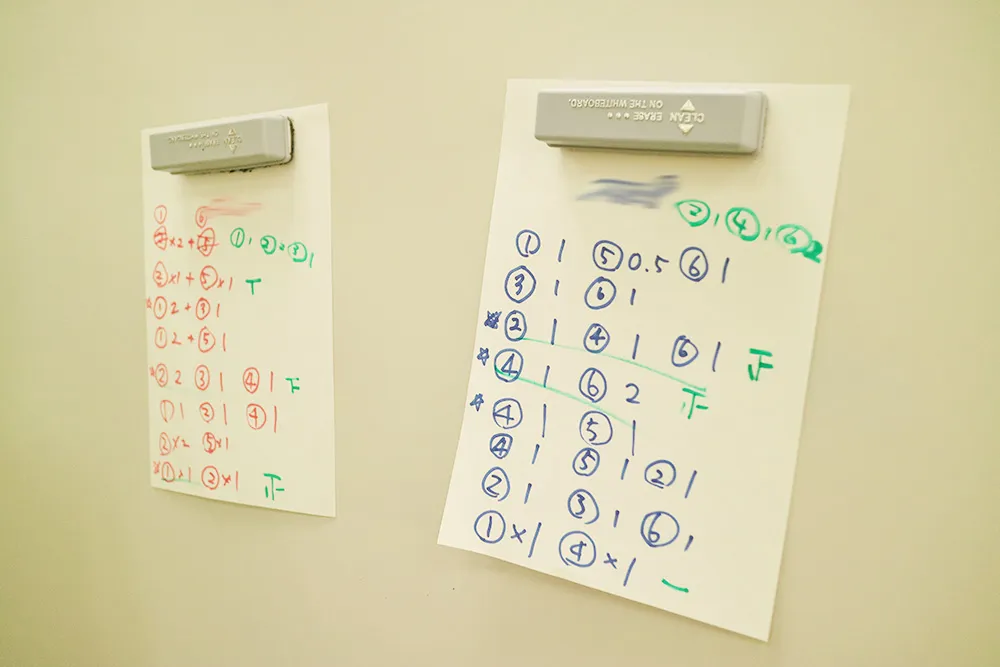 CLEAN ERASE ●●●
ON THE WHITEBOARD.
① ⑥
×2 + ①, ②, ③ 1
②×1 + ⑤×1 T
☆① 2 + ③ 1
① 2 + ⑤ 1
☆② 2 ③ 1 ④ 1 下
① 1 ② 1 ④ 1
②×2 ⑤×1
☆①×1 ③×1 正
CLEAN ERASE ●●●
ON THE WHITEBOARD.
②, ④, ⑥ 2
① 1 ⑤ 0.5 ⑥ 1
③ 1 ⑥ 1
☆② 1 ④ 1 ⑥ 1 正
☆④ 1 ⑥ 2 正
☆④ 1 ⑤ 1
④ 1 ⑤ 1 ② 1
② 1 ③ 1 ⑥ 1
①×1 ④×1 一